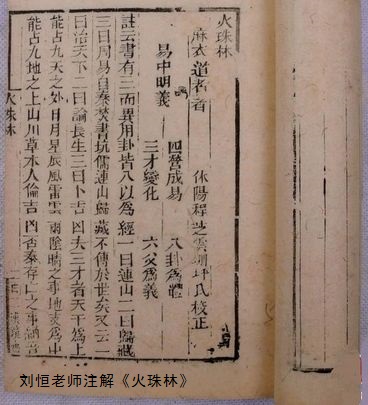 火珠林
麻衣道者著 休陽程芝雲珊坪氏校正
四營成易 八卦為體
易中明義
三才變化 六爻為義
註云書有三而異用卦皆八以為經一曰連山二曰歸藏
三曰周易自秦焚書坑儒連山歸藏不傳於世矣又云一
曰治天下二曰論長生三曰卜吉凶夫三才者天為上
能占九天之外日月星辰風雷雲雨陰晴之事地爻為中
能占九地之上山川草木人倫吉凶否泰存亡之事
火珠林
刘恒老师注解《火珠林》